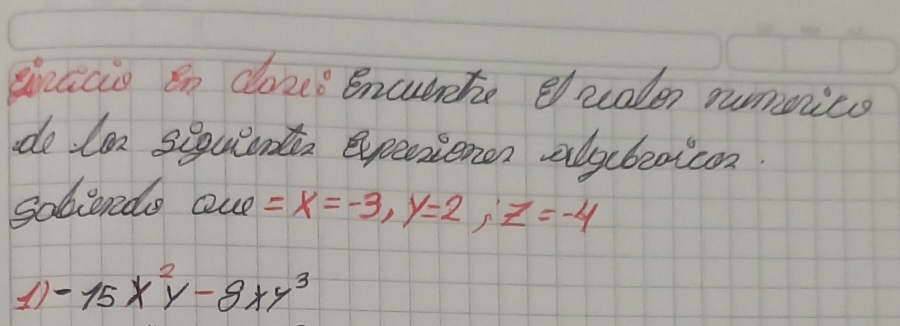 Ejercicio en clase: Encuentre El valor numerico
de los siguientes Expresiones algebraicas.
sabiendo que = X = -3, Y=2 ; Z = -4
1) - 15 X²y - 8xy³